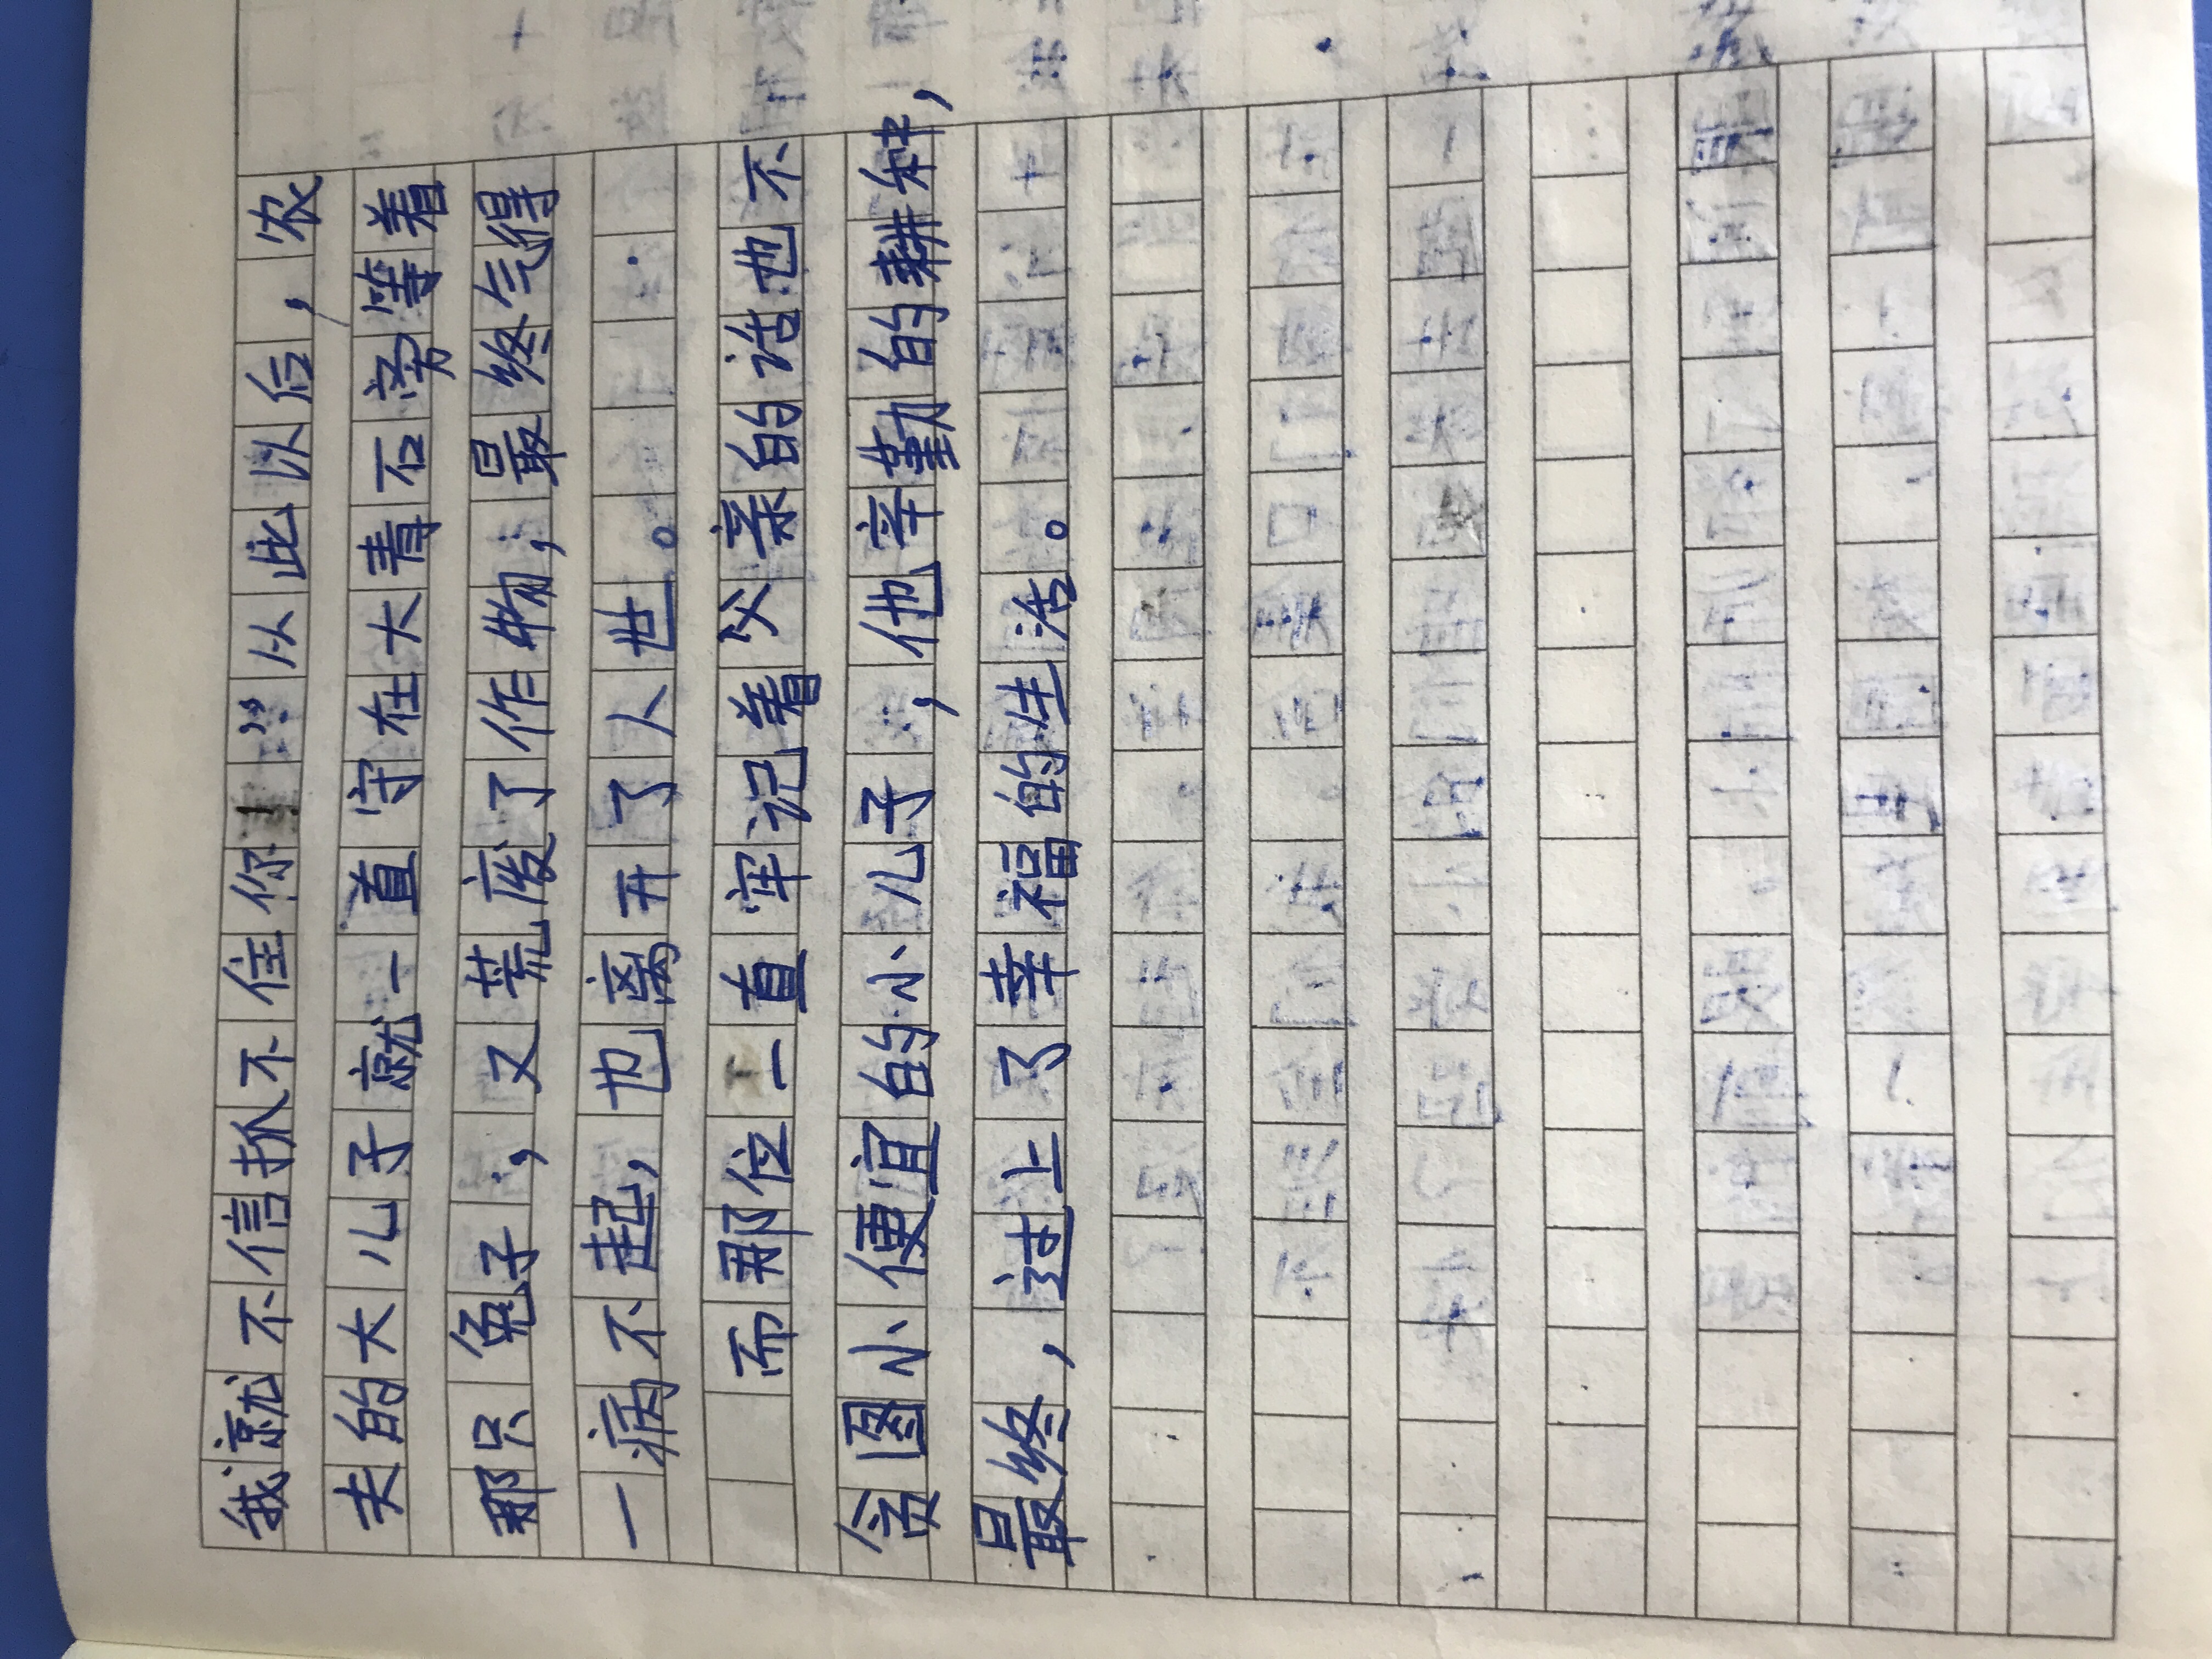 我就不信抓不住你！”从此以后，农
夫的大儿子就一直守在大青石旁等着
那只兔子，又荒废了作物，最终气得
一病不起，也离开了人世。
而那位一直牢记着父亲的话也不
贪图小便宜的小儿子，他辛勤的耕种，
最终，过上了幸福的生活。